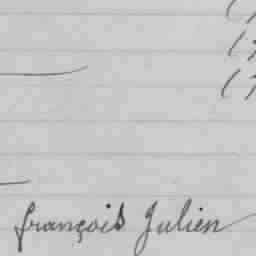 françois Julien